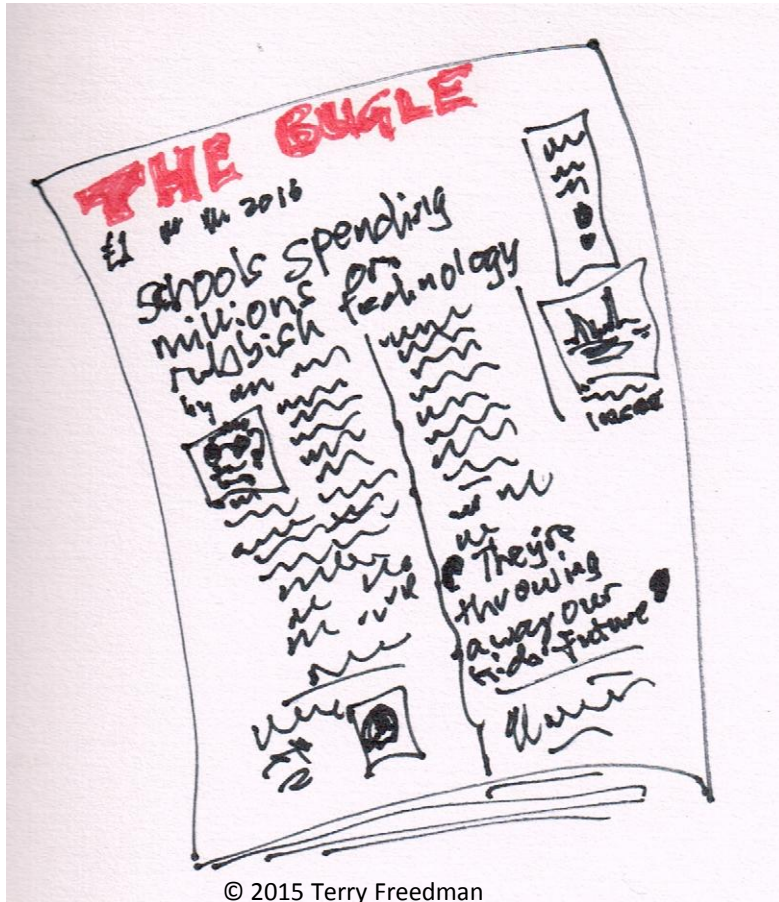 THE BUGLE
£1 2016
Schools spending
millions on
rubbish technology
by
They're
throwing
away our
kids' future
© 2015 Terry Freedman